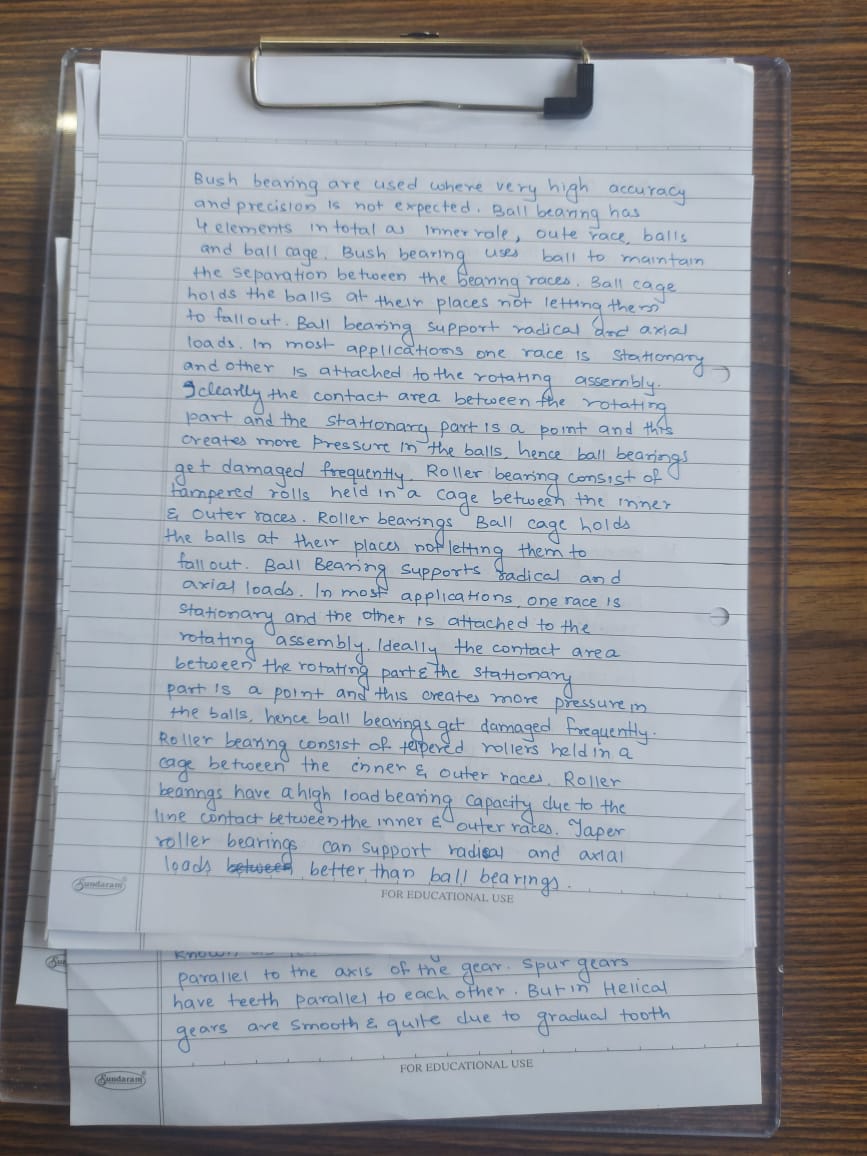 Bush bearing are used where very high accuracy
and precision is not expected. Ball bearing has
4 elements in total as inner role, oute race, balls
and ball cage. Bush bearing uses ball to maintain
the separation between the bearing races. Ball cage
holds the balls at their places not letting them
to fall out. Ball bearing support radical and axial
loads. In most applications one race is stationary
and other is attached to the rotating assembly.
the contact area between the rotating
part and the stationary part is a point and this
creates more pressure in the balls, hence ball bearings
get damaged frequently. Roller bearing consist of
tampered rolls held in a cage between the inner
& outer races. Roller bearings Ball cage holds
the balls at their places not letting them to
fall out. Ball Bearing supports radical and
axial loads. In most applications, one race is
stationary and the other is attached to the
rotating assembly. Ideally the contact area
between the rotating part & the stationary
part is a point and this creates more pressure in
the balls, hence ball bearings get damaged frequently.
Roller bearing consist of tapered rollers held in a
cage between the inner & outer races. Roller
bearings have a high load bearing capacity due to the
line contact between the inner & outer races. Taper
roller bearings can support radical and axial
loads between better than ball bearings.
Sundaram
FOR EDUCATIONAL USE
parallel to the axis of the gear. Spur gears
have teeth parallel to each other. But in Helical
gears are smooth & quite due to gradual tooth
Sundaram
FOR EDUCATIONAL USE